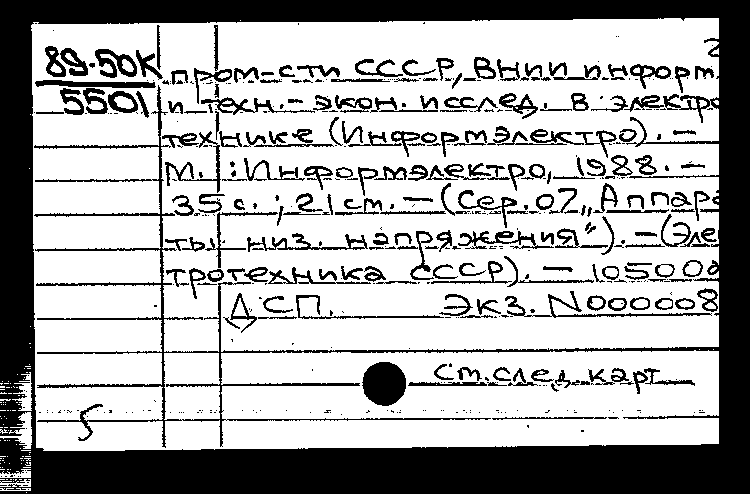 2
89-50К пром-сти СССР, ВНИИ информ.
5501 и техн.-экон. исслед. в электро
технике (Информэлектро). —
М. : Информэлектро, 1988. —
35 с. ; 21 см. — (Сер. 07 „Аппара
ты низ. напряжения"). — (Элек
тротехника СССР). — 10500
ДСП. ЭКЗ. N000008
См. след. карт
5